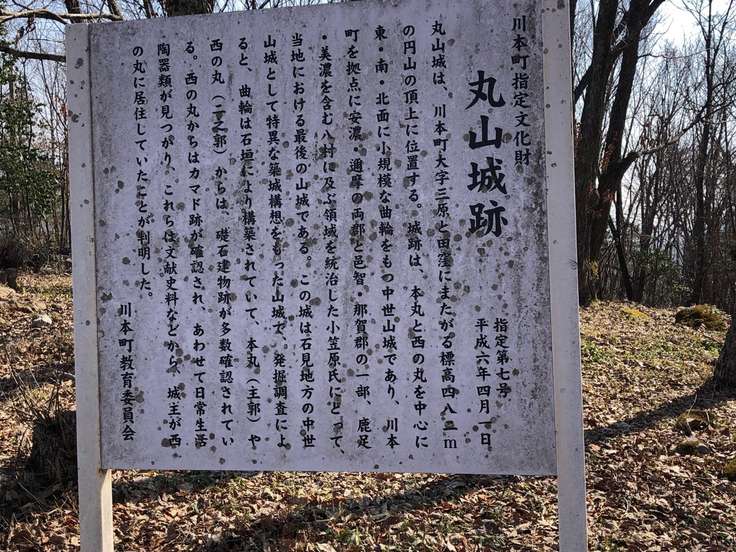 川本町指定文化財
丸山城跡
指定第七号
平成六年四月一日
丸山城は、川本町大字三原と田窪にまたがる標高四八二m
の円山の頂上に位置する。城跡は、本丸と西の丸を中心に
東・南・北面に小規模な曲輪をもつ中世山城であり、川本
町を拠点に安濃・邇摩の両郡と邑智・那賀郡の一部、鹿足
・美濃を含む八村に及ぶ領域を統治した小笠原氏にとって、
当地における最後の山城である。この城は石見地方の中世
山城として特異な築城構想をもった山城で、発掘調査によ
ると、曲輪は石垣により構築されていて、本丸（主郭）や
西の丸（二之郭）からは、礎石建物跡が多数確認されてい
る。西の丸からはカマド跡が確認され、あわせて日常生活
陶器類が見つかり、これらは文献史料などから、城主が西
の丸に居住していたことが判明した。
川本町教育委員会